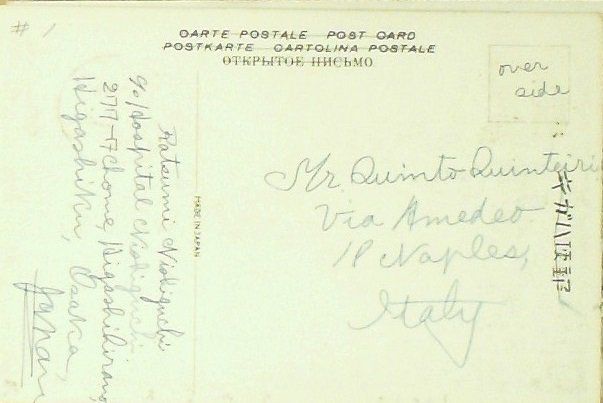 # 1
CARTE POSTALE POST CARD
POSTKARTE CARTOLINA POSTALE
ОТКРЫТОЕ ПИСЬМО
over
side
Mr. Quinto Quinteiri
Via Amedeo
18 Naples,
Italy
MADE IN JAPAN
Ratsumi Nishiguchi
c/o Hospital Nishiguchi
Higashiku, Osaka,
Japan